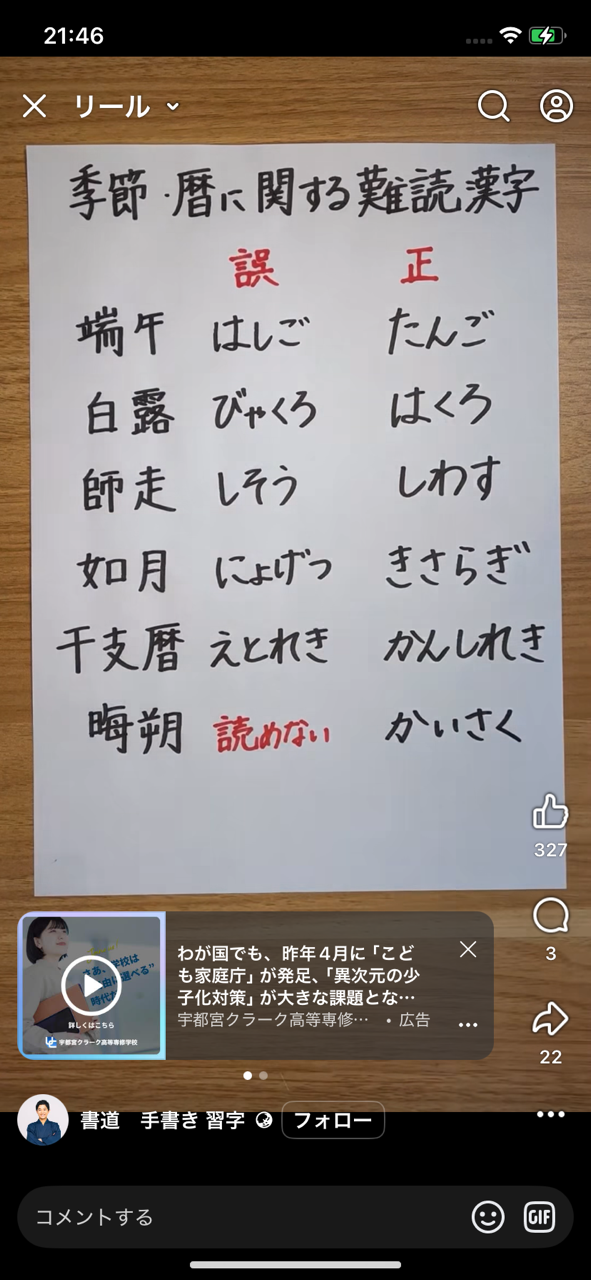 21:46
リール
季節・暦に関する難読漢字
誤 正
端午 はしご たんご
白露 びゃくろ はくろ
師走 しそう しわす
如月 にょげつ きさらぎ
干支暦 えとれき かんしれき
晦朔 読めない かいさく
327
3
22
さあ、学校は
自由に選べる"
時代
詳しくはこちら
宇都宮クラーク高等専修学校
わが国でも、昨年4月に「こど
も家庭庁」が発足、「異次元の少
子化対策」が大きな課題とな…
宇都宮クラーク高等専修… • 広告
書道 手書き 習字 フォロー
コメントする
GIF